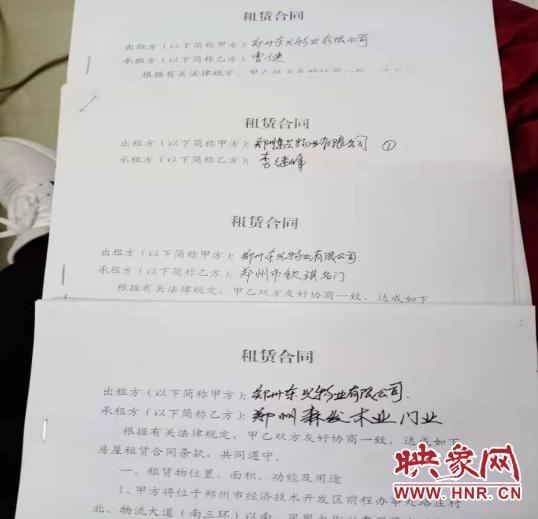 租赁合同
出租方(以下简称甲方):郑州东兴物业有限公司
承租方(以下简称乙方):曹健
根据有关法律规定,甲乙双方友好协商一致,
租赁合同
出租方(以下简称甲方):郑州东兴物业有限公司 ①
承租方(以下简称乙方):李继峰
租赁合同
出租方(以下简称甲方):郑州东兴物业有限公司.
承租方(以下简称乙方):郑州市钦琪名门
根据有关法律规定,甲乙双方友好协商一致,达成如下
租赁合同
出租方(以下简称甲方):郑州东兴物业有限公司.
承租方(以下简称乙方):郑州森发木业门业
根据有关法律规定,甲乙双方友好协商一致,达成如下
房屋租赁合同条款,共同遵守。
一、租赁物位置、面积、功能及用途
1、甲方将位于郑州市经济技术开发区前程办事处路庄村
北、物流大道(南三环)以南、
映象网
HNR.CN